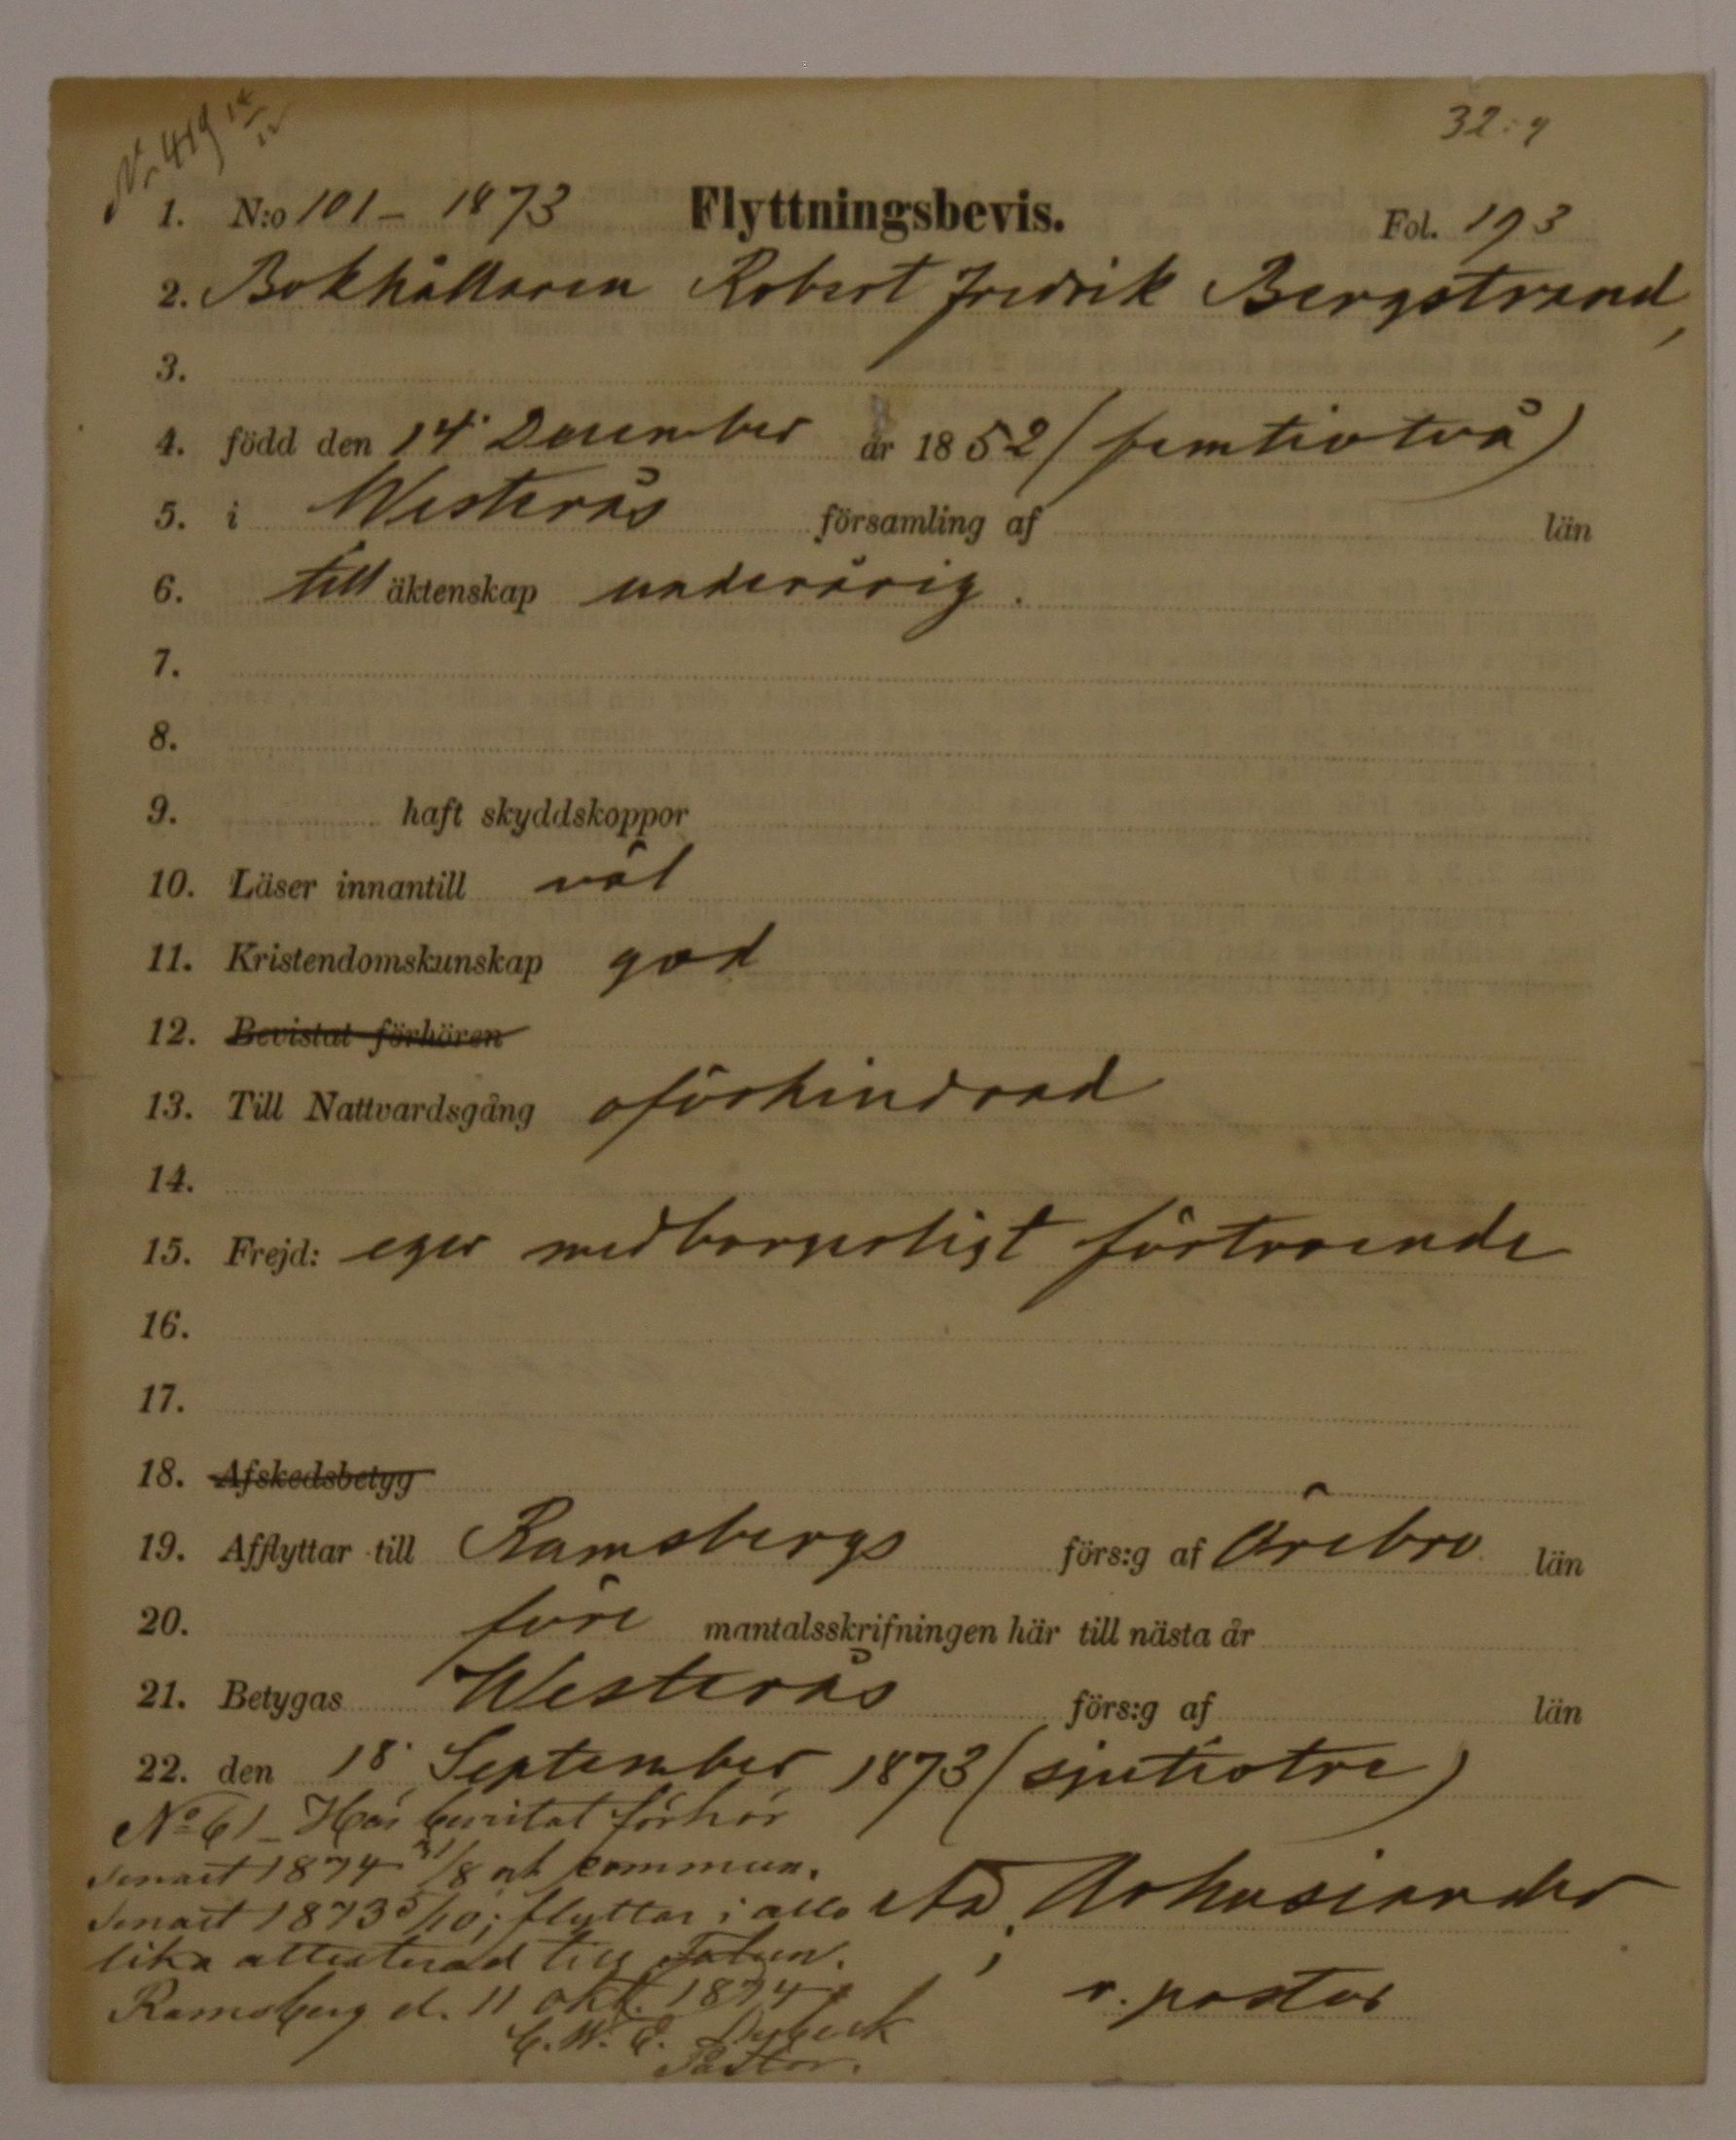 Nr 419 14/12
32:4
1. N:o 101 - 1873 Flyttningsbevis. Fol. 193
2. Bokhållaren Robert Fredrik Bergstrand,
3.
4. född den 14 December år 1852 (femtiotvå)
5. i Westerås församling af län
6. till äktenskap underårig.
7.
8.
9. haft skyddskoppor
10. Läser innantill väl
11. Kristendomskunskap god
12. Bevistat förhören
13. Till Nattvardsgång oförhindrad
14.
15. Frejd: eger medborgerligt förtroende
16.
17.
18. Afskedsbetyg
19. Afflyttar till Ramsbergs förs:g af Örebro län
20. före mantalsskrifningen här till nästa år
21. Betygas Westerås förs:g af län
22. den 18 September 1873 (sjutiotre)
No 61 - Här bevistat förhör
senast 1874 21/8 och kommun.
senast 1873 5/10; flyttar i allo
lika attesterad till Falun.
Ramsberg d. 11 okt. 1874
C. W. E. Dybeck
Pastor.
Ad.
v. pastor